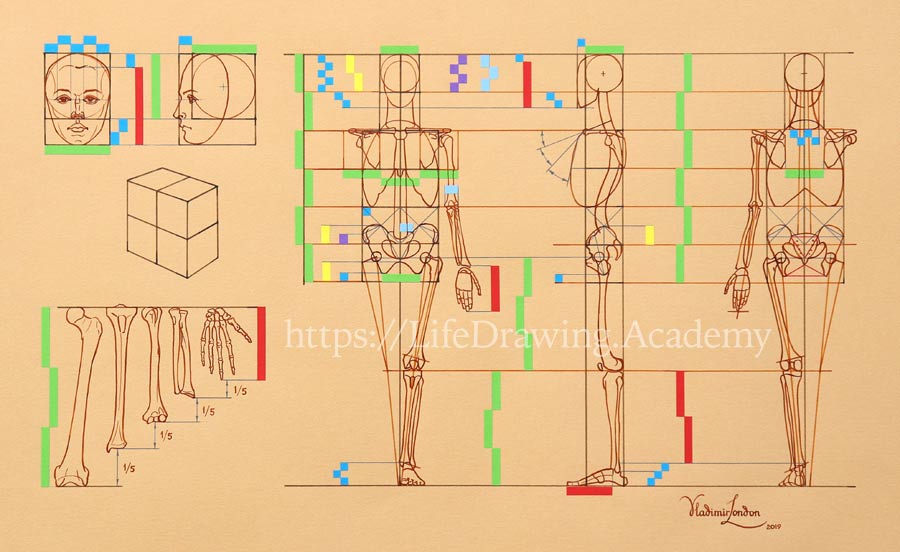 https://LifeDrawing.Academy
1/5
1/5
1/5
1/5
Vladimir London
2019